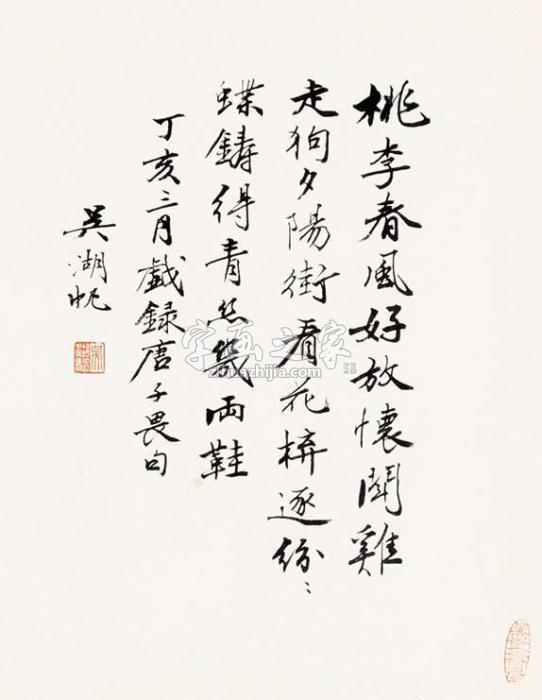 桃李春風好放懷鬥雞
走狗夕陽街看花拚逐紛〻
蝶鑄得青絲幾兩鞋
丁亥三月戲録唐子畏句
吳湖帆
字画之家
zihuazhijia.com